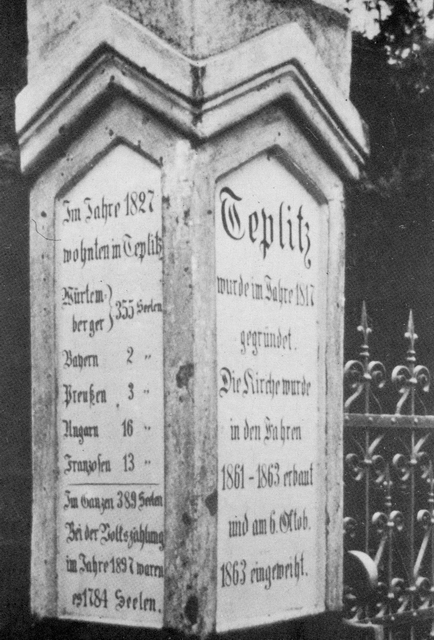 Im Jahre 1827
wohnten in Teplitz
Würtem-
berger } 355 Seelen
Bayern 2 "
Preußen 3 "
Ungarn 16 "
Franzosen 13 "
Im Ganzen 389 Seelen
Bei der Volkszählung
im Jahre 1897 waren
es 1784 Seelen.
Teplitz
wurde im Jahre 1817
gegründet.
Die Kirche wurde
in den Jahren
1861-1863 erbaut
und am 6. Oktob.
1863 eingeweiht.